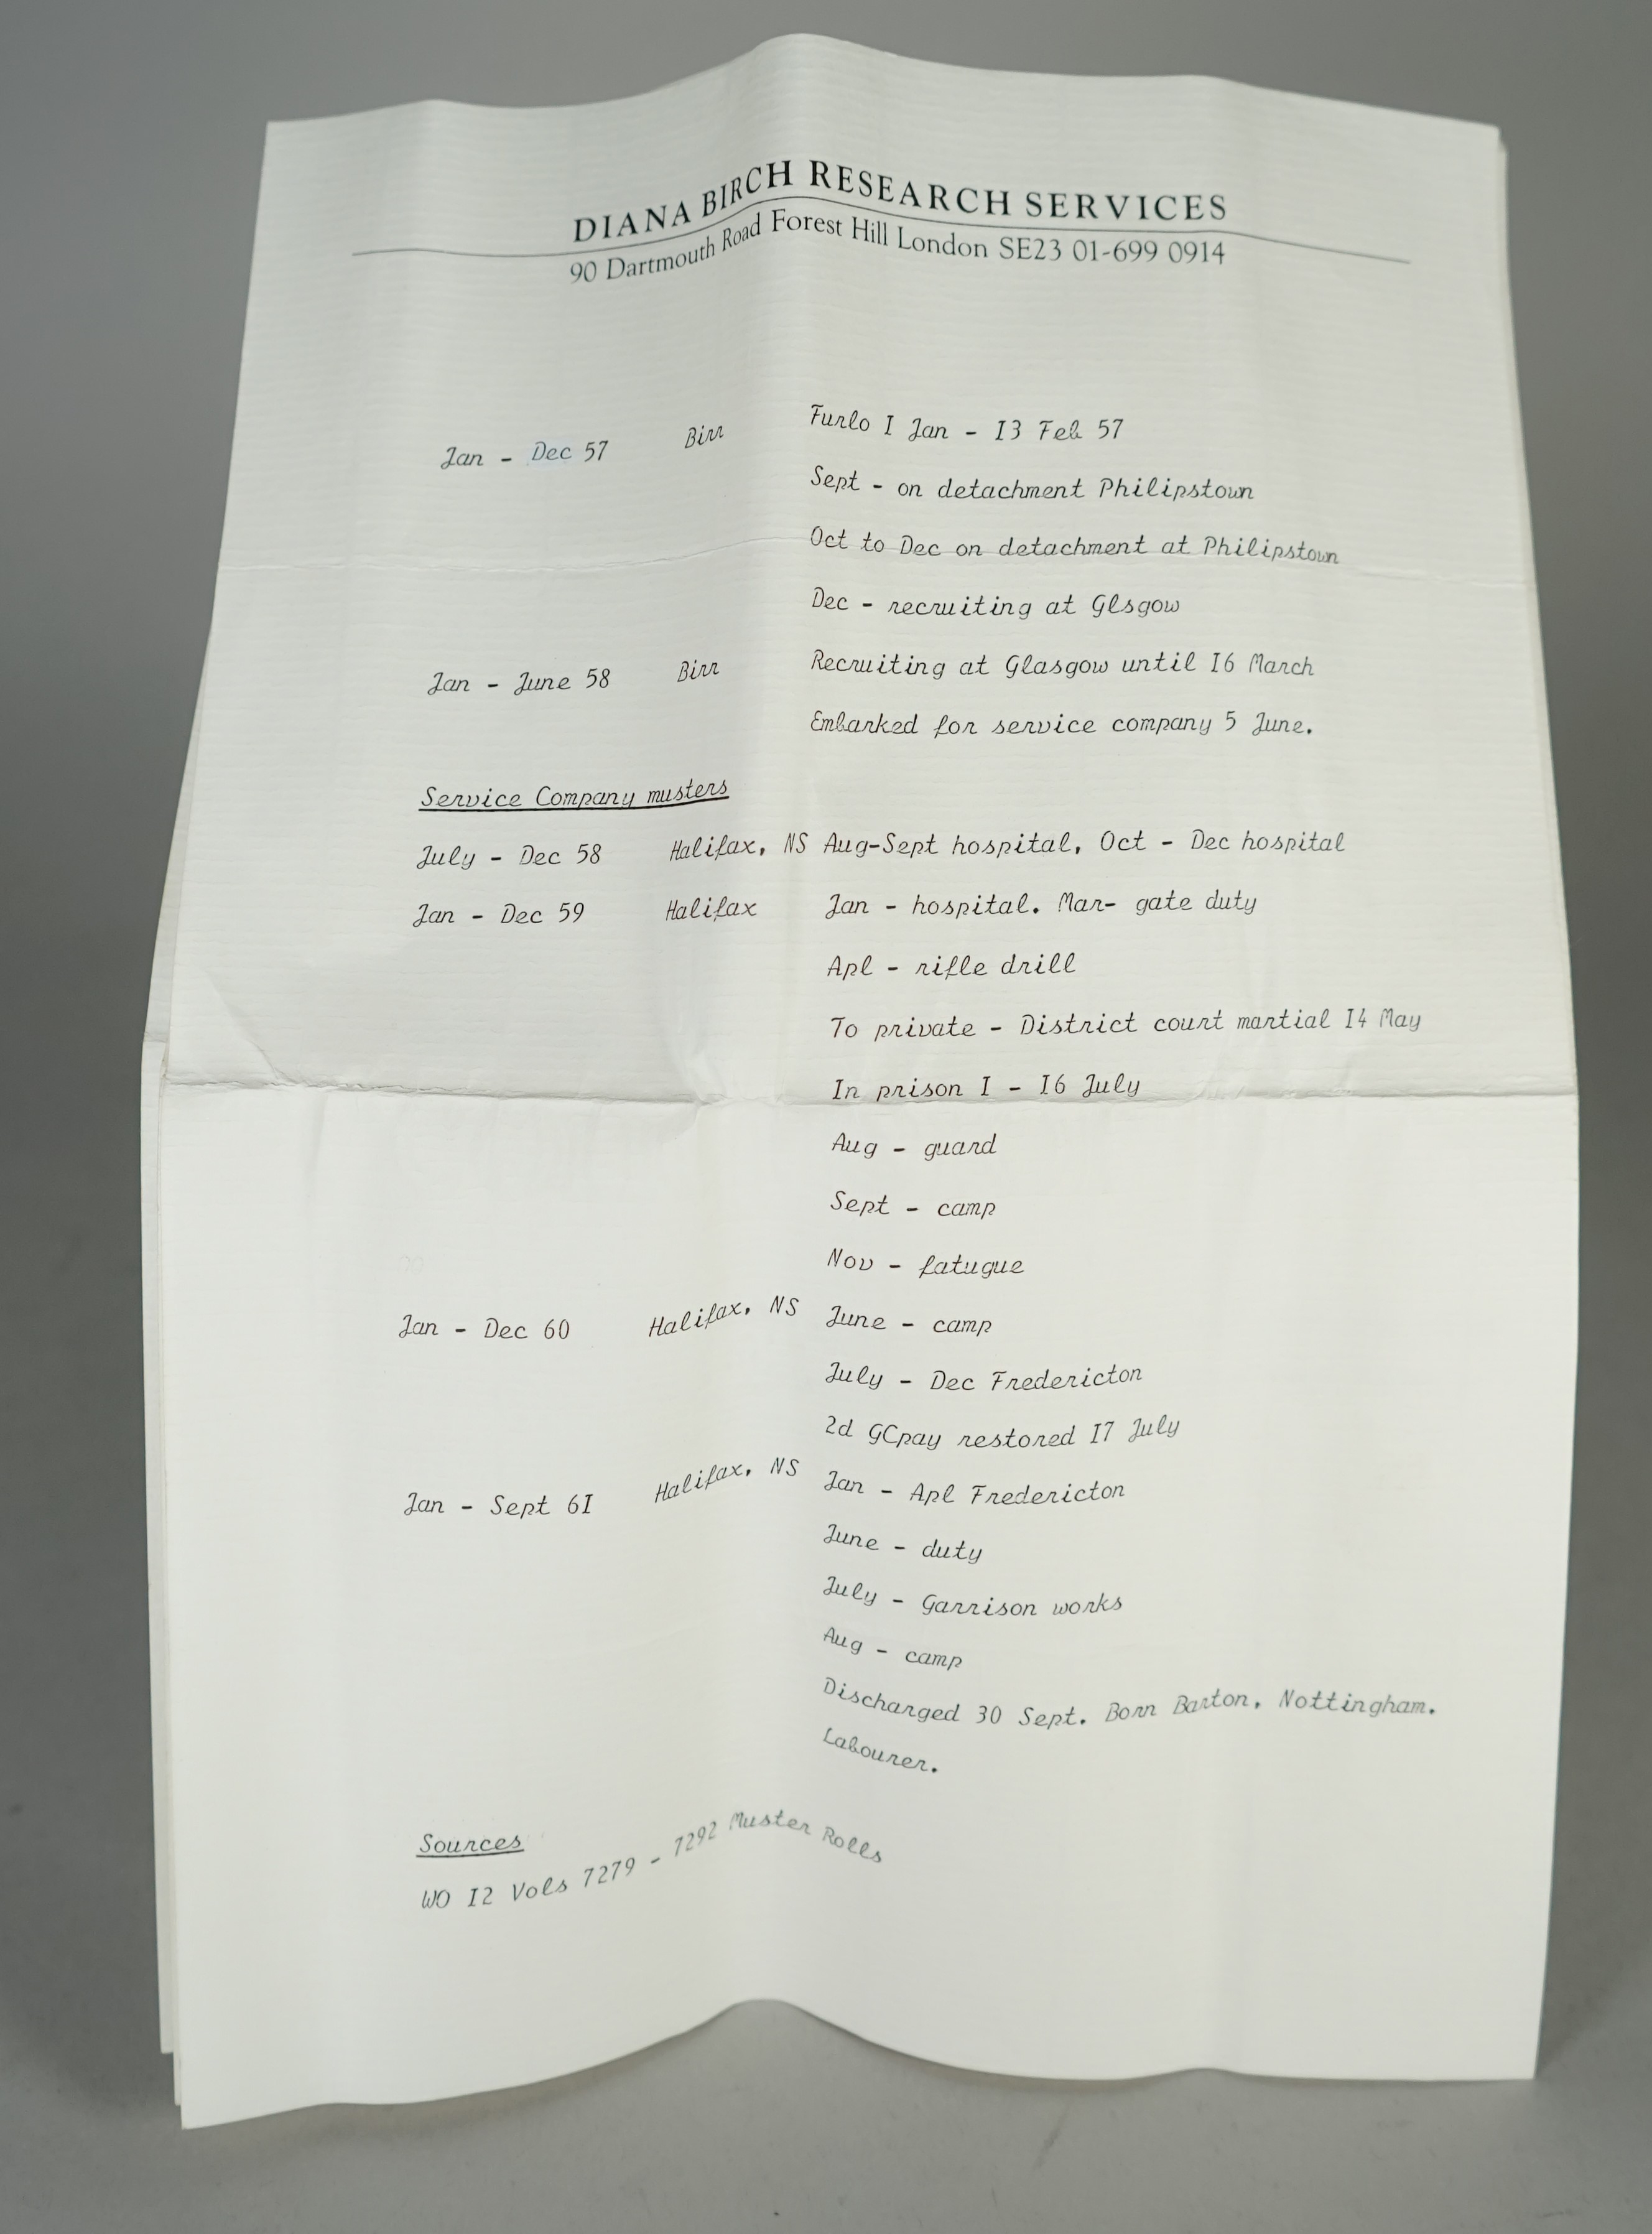 DIANA BIRCH RESEARCH SERVICES
90 Dartmouth Road Forest Hill London SE23 01-699 0914
Jan - Dec 57 Birr Furlo I Jan - I3 Feb 57
Sept - on detachment Philipstown
Oct to Dec on detachment at Philipstown
Dec - recruiting at Glsgow
Jan - June 58 Birr Recruiting at Glasgow until I6 March
Embarked for service company 5 June.
Service Company musters
July - Dec 58 Halifax, NS Aug-Sept hospital, Oct - Dec hospital
Jan - Dec 59 Halifax Jan - hospital. Mar- gate duty
Apl - rifle drill
To private - District court martial I4 May
In prison I - I6 July
Aug - guard
Sept - camp
Nov - fatugue
Jan - Dec 60 Halifax, NS June - camp
July - Dec Fredericton
2d GCpay restored I7 July
Jan - Sept 6I Halifax, NS Jan - Apl Fredericton
June - duty
July - Garrison works
Aug - camp
Discharged 30 Sept. Born Barton, Nottingham.
Labourer.
Sources
WO I2 Vols 7279 - 7292 Muster Rolls